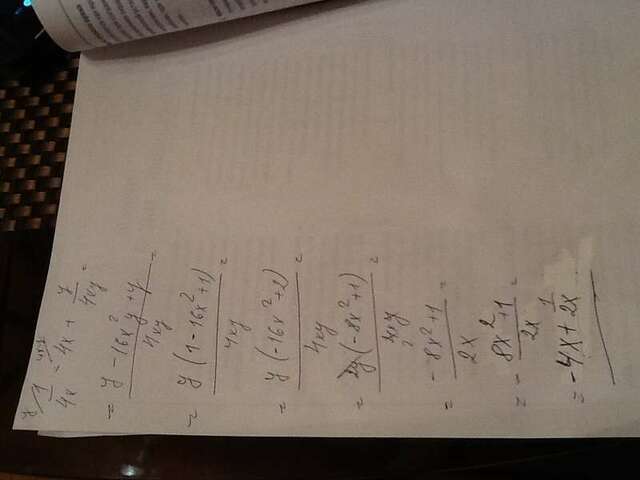 y/ 1/4x - 4xy/ 4x + y/4xy =
= (y - 16x²y + y)/4xy =
= y(1 - 16x² + 1)/4xy =
= y(-16x² + 2)/4xy =
= 2y(-8x² + 1)/4xy 2 =
= (-8x² + 1)/2x =
= - (8x² + 1)/2x =
= -4x + 1/2x